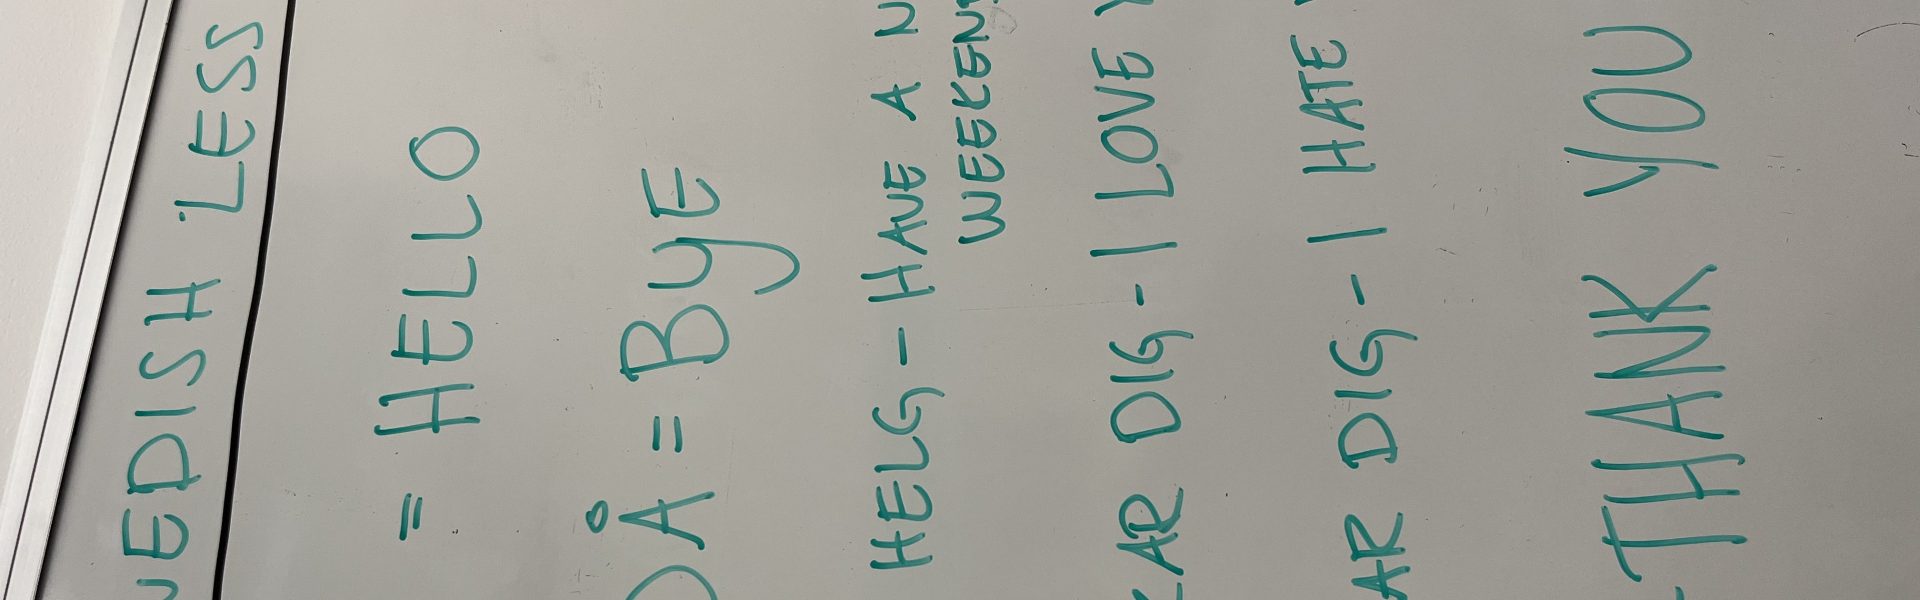 WEDISH LESS
= HELLO
DÅ = BYE
HELG - HAVE A N
WEEKEND
LAR DIG - I LOVE Y
AR DIG - I HATE Y
- THANK YOU